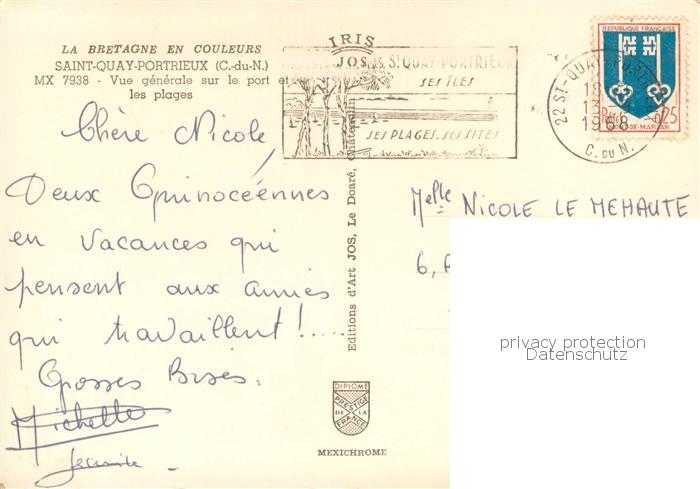 LA BRETAGNE EN COULEURS
SAINT-QUAY-PORTRIEUX (C.-du-N.)
MX 7938 - Vue générale sur le port et
les plages
IRIS
JOS
St QUAY-PORTRIEUX
SES ÎLES
SES PLAGES. SES SITES
22 ST-QUAY-PORTRIEUX
18
13
1968
C. DU N.
REPUBLIQUE FRANÇAISE
0,25
MONT-DE-MARSAN
Chère Nicole,
Deux Quinocéennes
en vacances qui
pensent aux amies
qui travaillent!....
Grosses Bises.
Michelle
Editions d'Art JOS, Le Doaré, Châteaulin
Melle NICOLE LE MEHAUTE
6,
privacy protection
Datenschutz
DIPLOME
PRESTIGE
DE LA
FRANCE
MEXICHROME